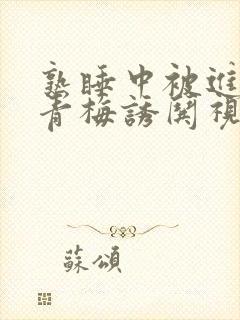 熟睡中被進
青梅誘関視
蘇頌